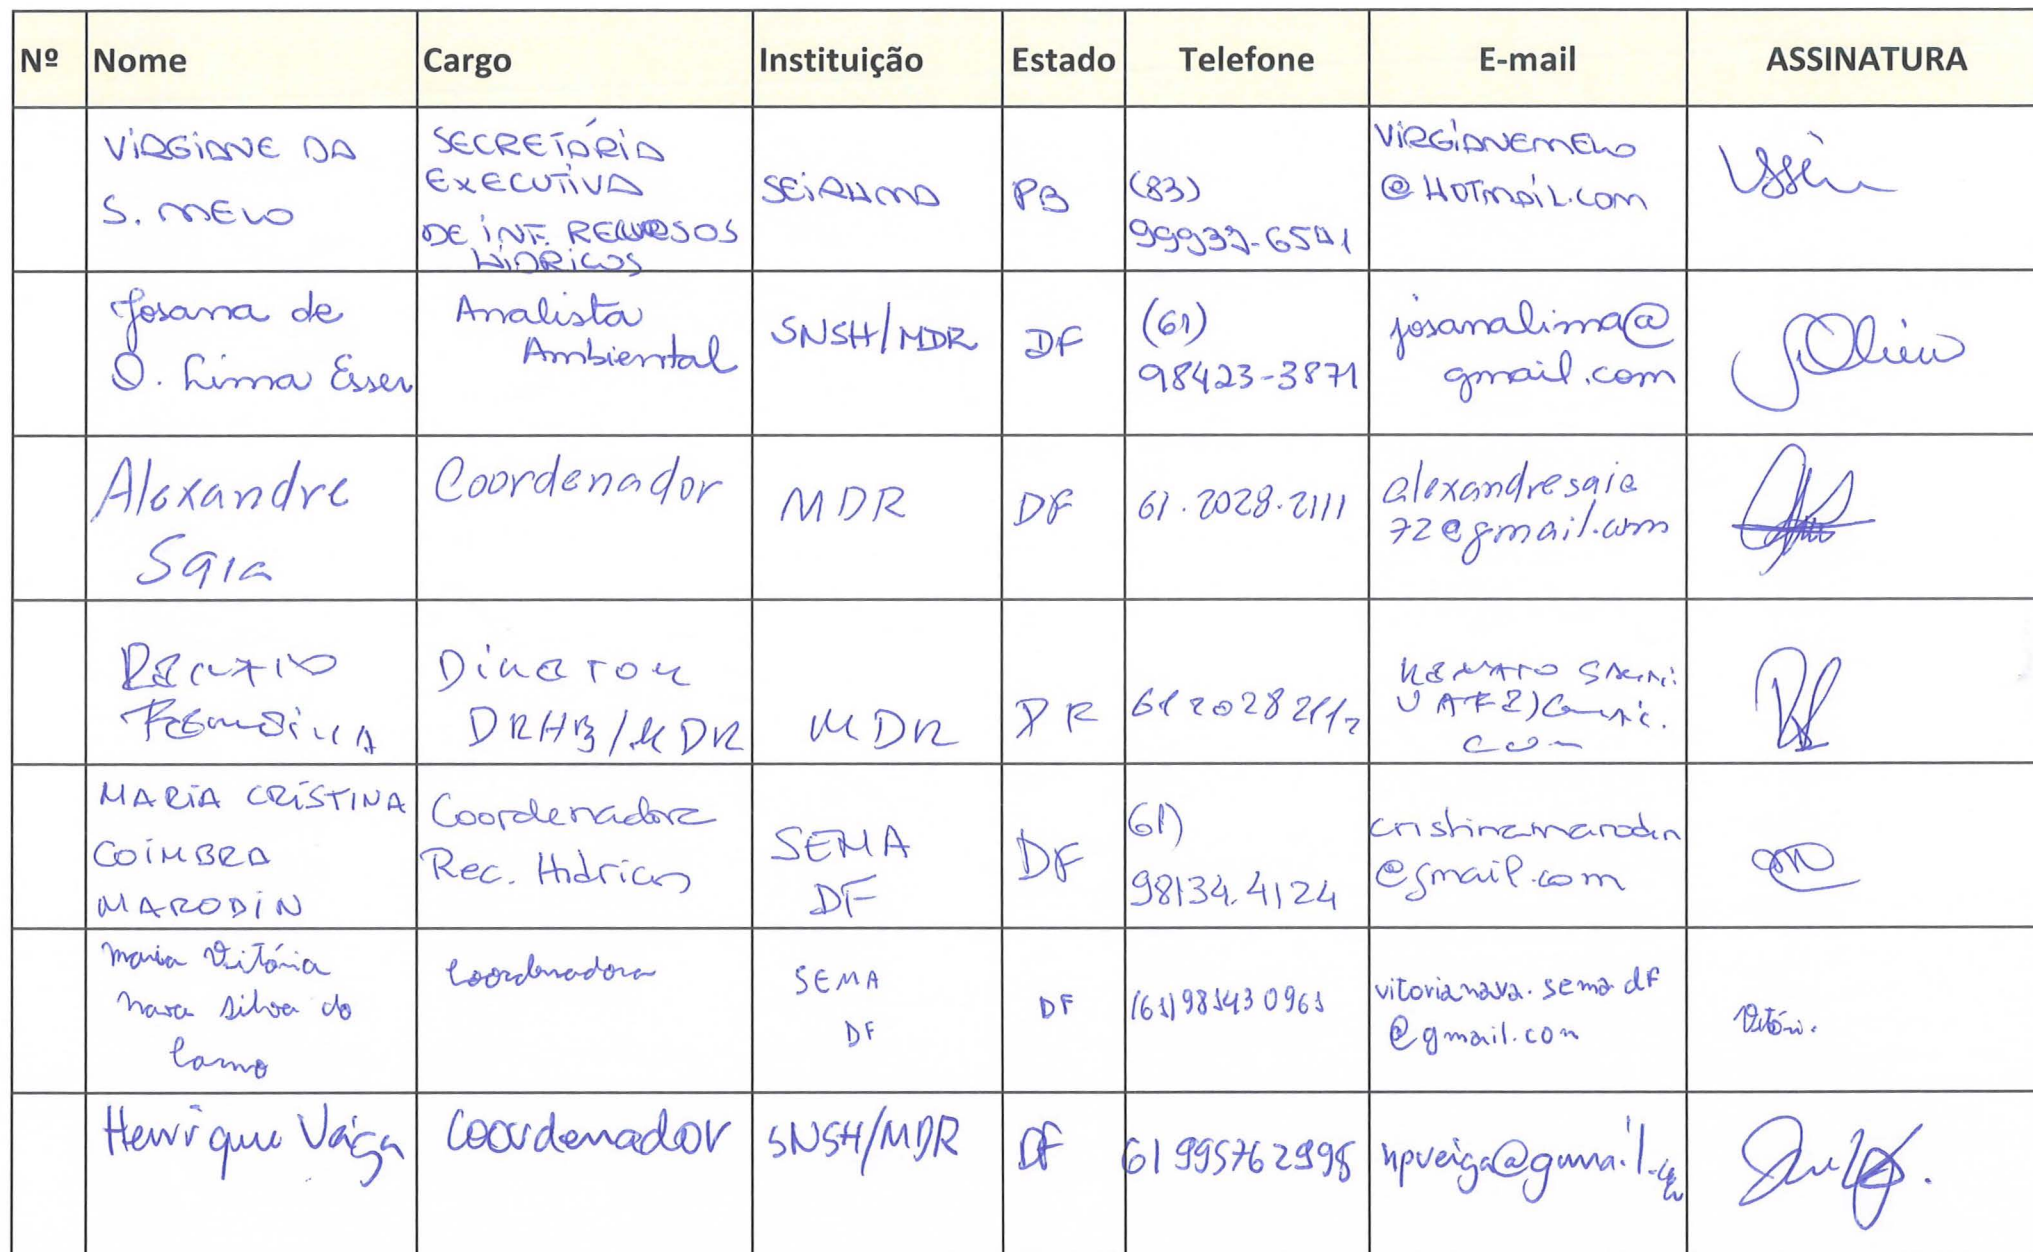 Nº Nome Cargo Instituição Estado Telefone E-mail ASSINATURA
VIRGIANE DA
S. MELO
SECRETÁRIA
EXECUTIVA
DE INF. RECURSOS
HÍDRICOS
SEIRHMA
PB
(83)
VIRGIANEMELO
@HOTMAIL.COM
Josana de
O. Lima Esser
Analista
Ambiental
SNSH/MDR
DF
(61)
98423-3871
josanalima@
gmail.com
Alexandre
Saia
Coordenador
MDR
DF
61.2028.2111
alexandresaia
72@gmail.com
Diretor
DRHB/MDR
MDR
61 2028 2112
MARIA CRISTINA
COIMBRA
MARODIN
Coordenadora
Rec. Hídricos
SEMA
DF
DF
61)
98134.4124
cristinamarodin
@gmail.com
Maria Vitória
Nava Silva do
Carmo
Coordenadora
SEMA
DF
DF
(61) 981430961
vitorianava.sema df
@gmail.com
Henrique Veiga
Coordenador
SNSH/MDR
DF
61 995762998
hpveiga@gmail.com